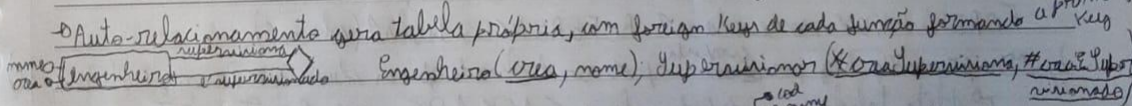 →Auto-relacionamento gera tabela própria, com foreign Keys de cada função formando a p Key
supervisiona
nome
crea
engenheiro
é supervisionado
Engenheiro(crea, nome); Supervisionar(#creaSupervisiona, #creaÉSuper
visionado)
cod